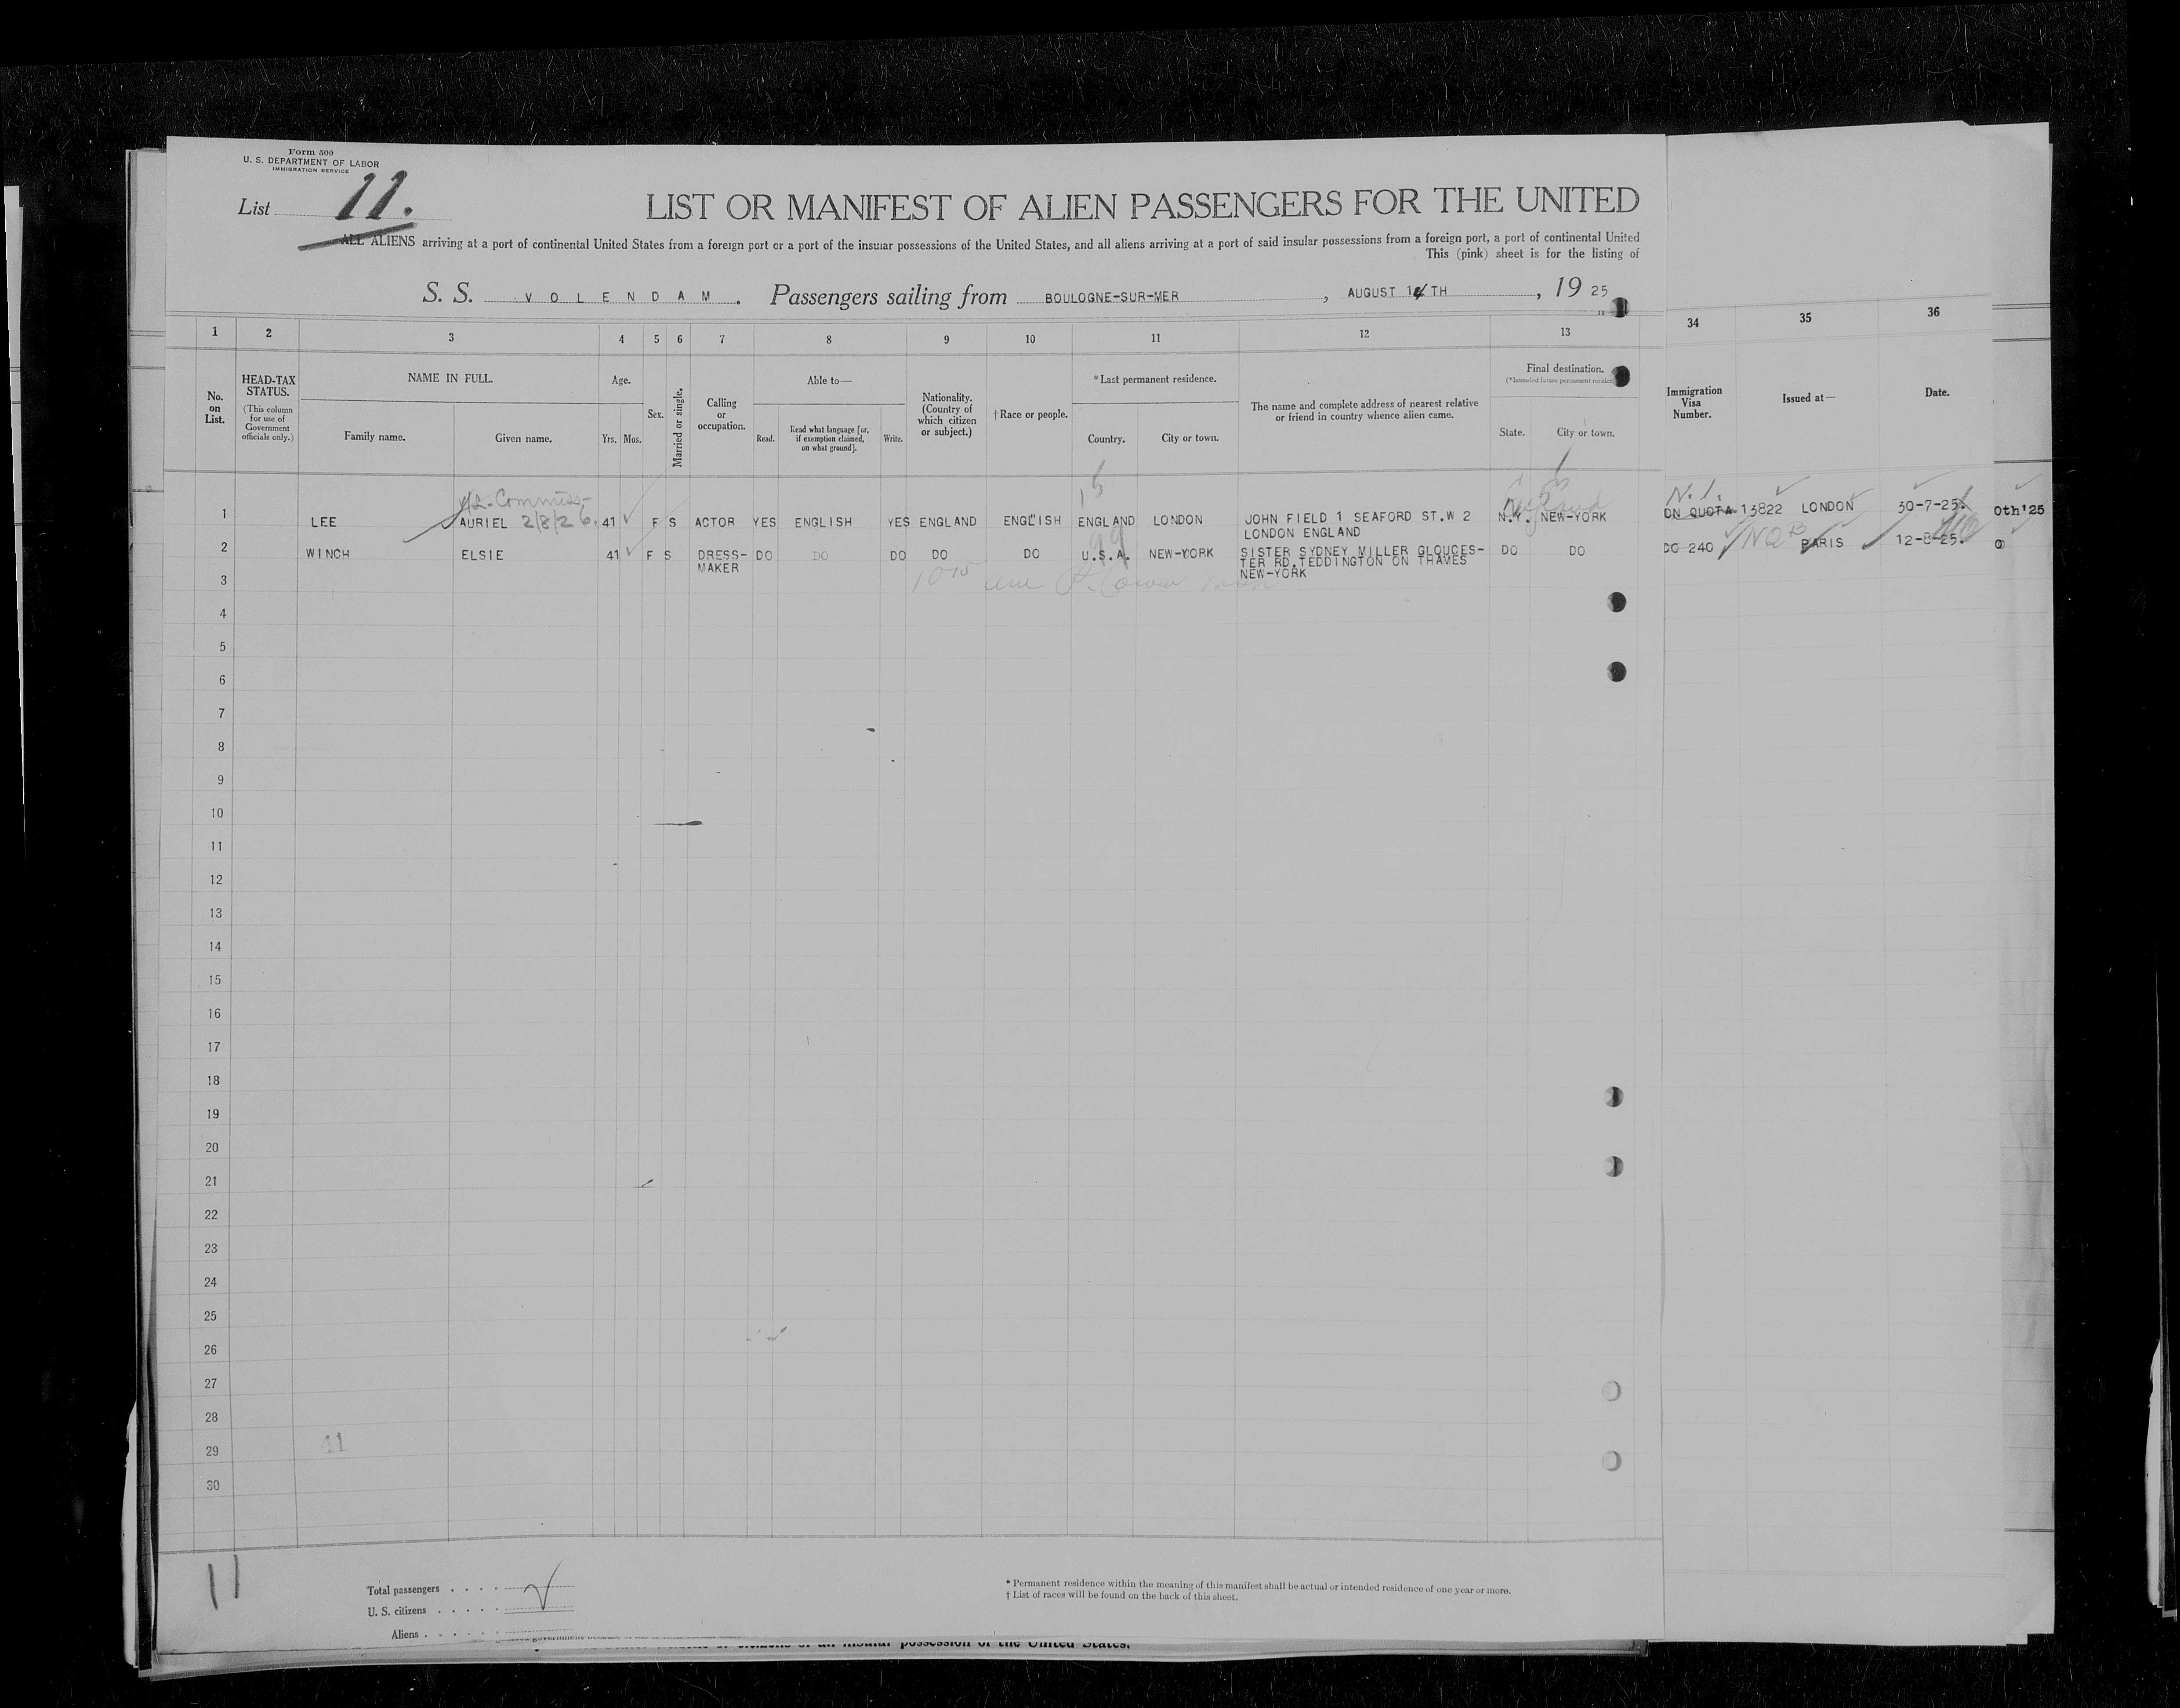 Form 500
U. S. DEPARTMENT OF LABOR
IMMIGRATION SERVICE
List 11.
LIST OR MANIFEST OF ALIEN PASSENGERS FOR THE UNITED
ALL ALIENS arriving at a port of continental United States from a foreign port or a port of the insular possessions of the United States, and all aliens arriving at a port of said insular possessions from a foreign port, a port of continental United
This (pink) sheet is for the listing of
S. S. VOLENDAM. Passengers sailing from BOULOGNE-SUR-MER, AUGUST 14TH, 1925
1 2 3 4 5 6 7 8 9 10 11 12 13 34 35 36
No. on List.
HEAD-TAX STATUS.
(This column for use of Government officials only.)
NAME IN FULL.
Family name. Given name.
Age.
Yrs. Mos.
Sex.
Married or single.
Calling or occupation.
Able to—
Read. Read what language [or, if exemption claimed, on what ground]. Write.
Nationality. (Country of which citizen or subject.)
†Race or people.
*Last permanent residence.
Country. City or town.
The name and complete address of nearest relative or friend in country whence alien came.
Final destination.
State. City or town.
Immigration Visa Number.
Issued at—
Date.
2/8/26
1 LEE AURIEL 41 F S ACTOR YES ENGLISH YES ENGLAND ENGLISH ENGLAND LONDON JOHN FIELD 1 SEAFORD ST.W 2 N.Y. NEW-YORK ON QUOTA 13822 LONDON 30-7-25. 0th'25
LONDON ENGLAND
2 WINCH ELSIE 41 F S DRESS- DO DO DO DO DO U.S.A. NEW-YORK SISTER SYDNEY MILLER GLOUCES- DO DO DO 240 PARIS 12-8-25.
MAKER TER RD.TEDDINGTON ON THAMES
3 NEW-YORK
4
5
6
7
8
9
10
11
12
13
14
15
16
17
18
19
20
21
22
23
24
25
26
27
28
29 41
30
11
Total passengers
U. S. citizens
Aliens
* Permanent residence within the meaning of this manifest shall be actual or intended residence of one year or more.
† List of races will be found on the back of this sheet.
possession of the United States.